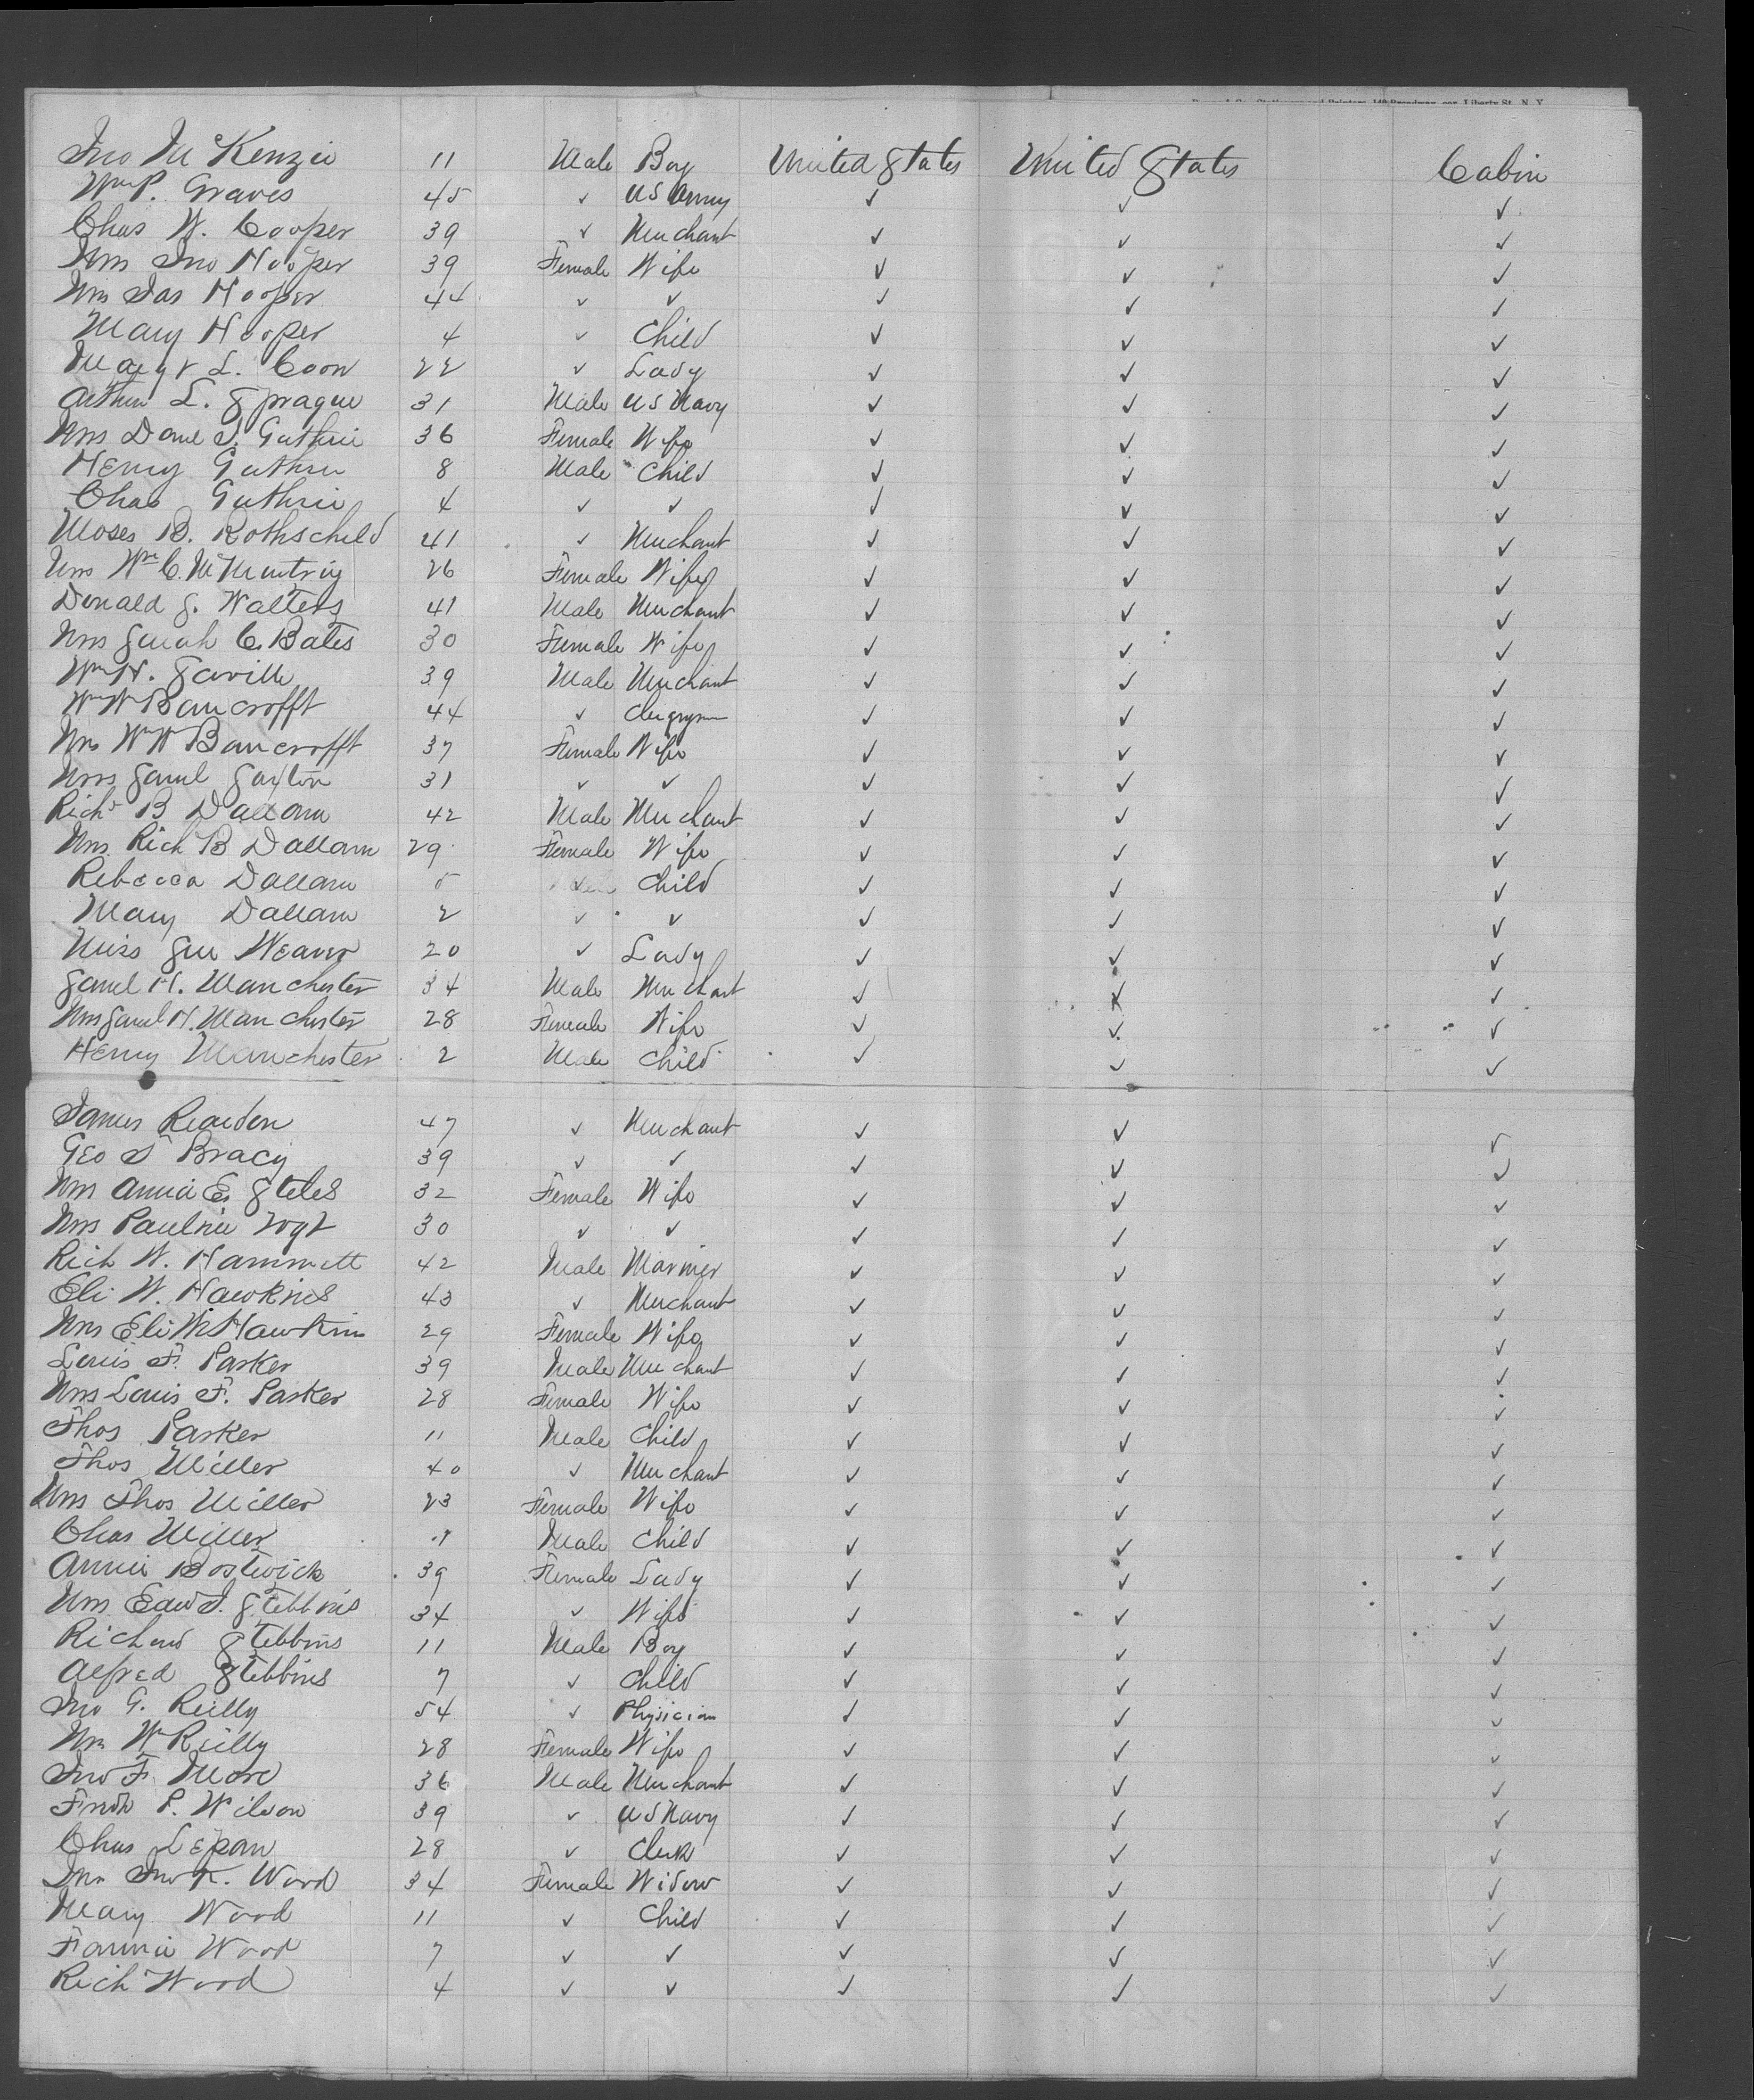 Broadway, cor. Liberty St., N. Y.
Jno McKenzie 11 Male Boy United States United States Cabin
Wm P. Graves 45 ✓ US Army ✓ ✓ ✓
Chas W. Cooper 39 ✓ Merchant ✓ ✓ ✓
Mrs Jno Hooper 39 Female Wife ✓ ✓ ✓
Mrs Jas Hooper 44 ✓ ✓ ✓ ✓ ✓
Mary Hooper 4 ✓ Child ✓ ✓ ✓
L. Coon 22 ✓ Lady ✓ ✓ ✓
Arthur L. Sprague 31 Male US Navy ✓ ✓ ✓
Mrs Danl S. Guthrie 36 Female Wife ✓ ✓ ✓
Henry Guthrie 8 Male Child ✓ ✓ ✓
Chas Guthrie 4 ✓ ✓ ✓ ✓ ✓
Moses B. Rothschild 41 ✓ Merchant ✓ ✓ ✓
Mrs Wm C. 26 Female Wife ✓ ✓ ✓
Donald S. Walters 41 Male Merchant ✓ ✓ ✓
Mrs Sarah C. Bates 30 Female Wife ✓ ✓ ✓
Wm H. Saville 39 Male Merchant ✓ ✓ ✓
Wm W Bancrofft 44 ✓ Clergyman ✓ ✓ ✓
Mrs Wm W Bancrofft 37 Female Wife ✓ ✓ ✓
Mrs Saml 31 ✓ ✓ ✓ ✓ ✓
Richd B Dallam 42 Male Merchant ✓ ✓ ✓
Mrs Rich B Dallam 29 Female Wife ✓ ✓ ✓
Rebecca Dallam 5 Child ✓ ✓ ✓
Mary Dallam 2 ✓ ✓ ✓ ✓ ✓
Miss Sue Weaver 20 ✓ Lady ✓ ✓ ✓
Saml H. Manchester 34 Male Merchant ✓ ✓ ✓
Mrs Saml H. Manchester 28 Female Wife ✓ ✓ ✓
Henry Manchester 2 Male Child ✓ ✓ ✓
James Reardon 47 ✓ Merchant ✓ ✓ ✓
Geo S Bracy 39 ✓ ✓ ✓ ✓ ✓
Mrs Annia E. Steles 32 Female Wife ✓ ✓ ✓
Mrs Pauline Vogt 30 ✓ ✓ ✓ ✓ ✓
Rich W. Hammett 42 Male Mariner ✓ ✓ ✓
Eli W. Hawkins 43 ✓ Merchant ✓ ✓ ✓
Mrs Eli W. Hawkins 29 Female Wife ✓ ✓ ✓
Louis F. Parker 39 Male Merchant ✓ ✓ ✓
Mrs Louis F. Parker 28 Female Wife ✓ ✓ ✓
Thos Parker 11 Male Child ✓ ✓ ✓
Thos Miller 40 ✓ Merchant ✓ ✓ ✓
Mrs Thos Miller 23 Female Wife ✓ ✓ ✓
Chas Miller Male Child ✓ ✓ ✓
Annie Bostwick 39 Female Lady ✓ ✓ ✓
Mrs Edwd S. Stebbins 34 ✓ Wife ✓ ✓ ✓
Richard Stebbins 11 Male Boy ✓ ✓ ✓
Alfred Stebbins 7 ✓ Child ✓ ✓ ✓
Jno G. Reilly 54 ✓ Physician ✓ ✓ ✓
Mrs Wm Reilly 28 Female Wife ✓ ✓ ✓
Jno F. More 36 Male Merchant ✓ ✓ ✓
Fredk P. Wilson 39 ✓ US Navy ✓ ✓ ✓
Chas Lepan 28 ✓ Clerk ✓ ✓ ✓
Mrs Jno K. Wood 34 Female Widow ✓ ✓ ✓
Mary Wood 11 ✓ Child ✓ ✓ ✓
Fannie Wood 7 ✓ ✓ ✓ ✓ ✓
Rich Wood 4 ✓ ✓ ✓ ✓ ✓